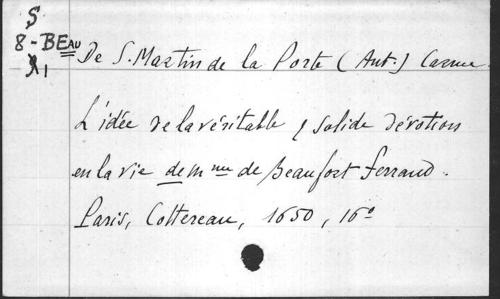 S.
8 - BEAU
R 1
De S. Martin de la Porte (Ant.) Carme.
L'idée de la véritable & solide dévotion
en la vie de Mme de Beaufort Ferrand.
Paris, Cottereau, 1650, 16°